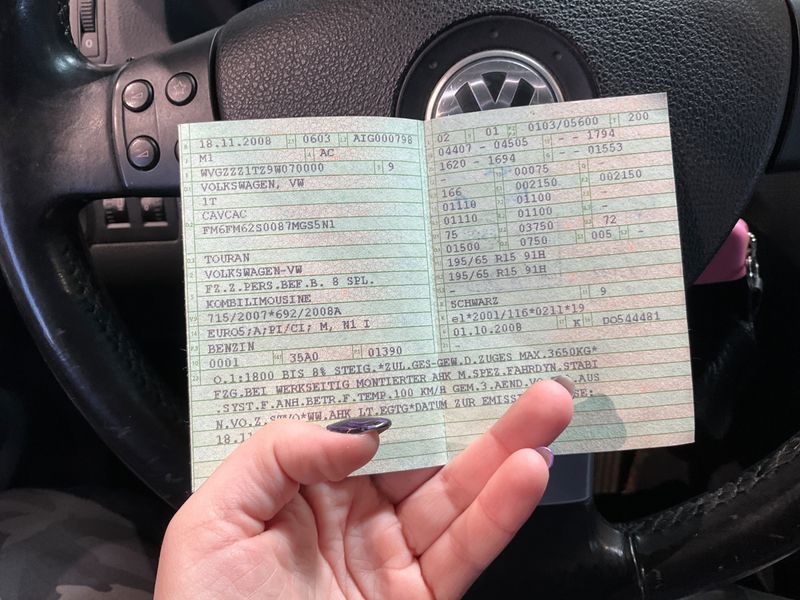 18.11.2008 0603 AIG000798
M1 AC
WVGZZZ1TZ9W070000 9
VOLKSWAGEN, VW
1T
CAVCAC
FM6FM62S0087MGS5N1
TOURAN
VOLKSWAGEN-VW
FZ.Z.PERS.BEF.B. 8 SPL.
KOMBILIMOUSINE
715/2007*692/2008A
EURO5;A;PI/CI; M, N1 I
BENZIN
0001 35A0 01390
02 01 0103/05600 200
04407 - 04505 - - 1794
1620 - 1694 - - 01553
00075
166 002150 002150
01110 01100 -
01110 01100 -
75 03750 72
01500 0750 005 -
195/65 R15 91H
195/65 R15 91H
-
SCHWARZ 9
e1*2001/116*0211*19
01.10.2008 K DO544481
O.1:1800 BIS 8% STEIG.*ZUL.GES-GEW.D.ZUGES MAX.3650KG*
FZG.BEI WERKSEITIG MONTIERTER AHK M.SPEZ.FAHRDYN.STABI
.SYST.F.ANH.BETR.F.TEMP.100 KM/H GEM.3.AEND.VO. AUS
N.VO.Z.STVO*WW.AHK LT.EGTG*DATUM ZUR EMISS
18.11